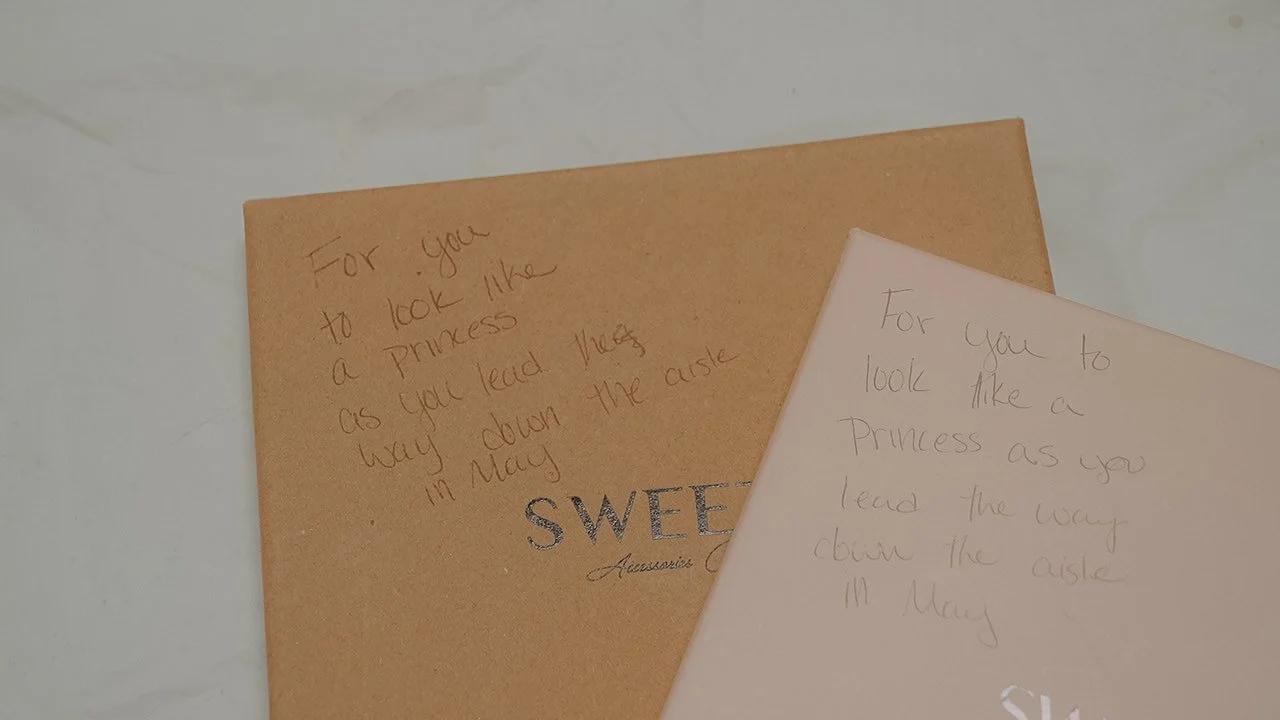 For you
to look like
a princess
as you lead the
way down the aisle
in May
SWEET
Accessories
For you to
look like a
Princess as you
lead the way
down the aisle
in May